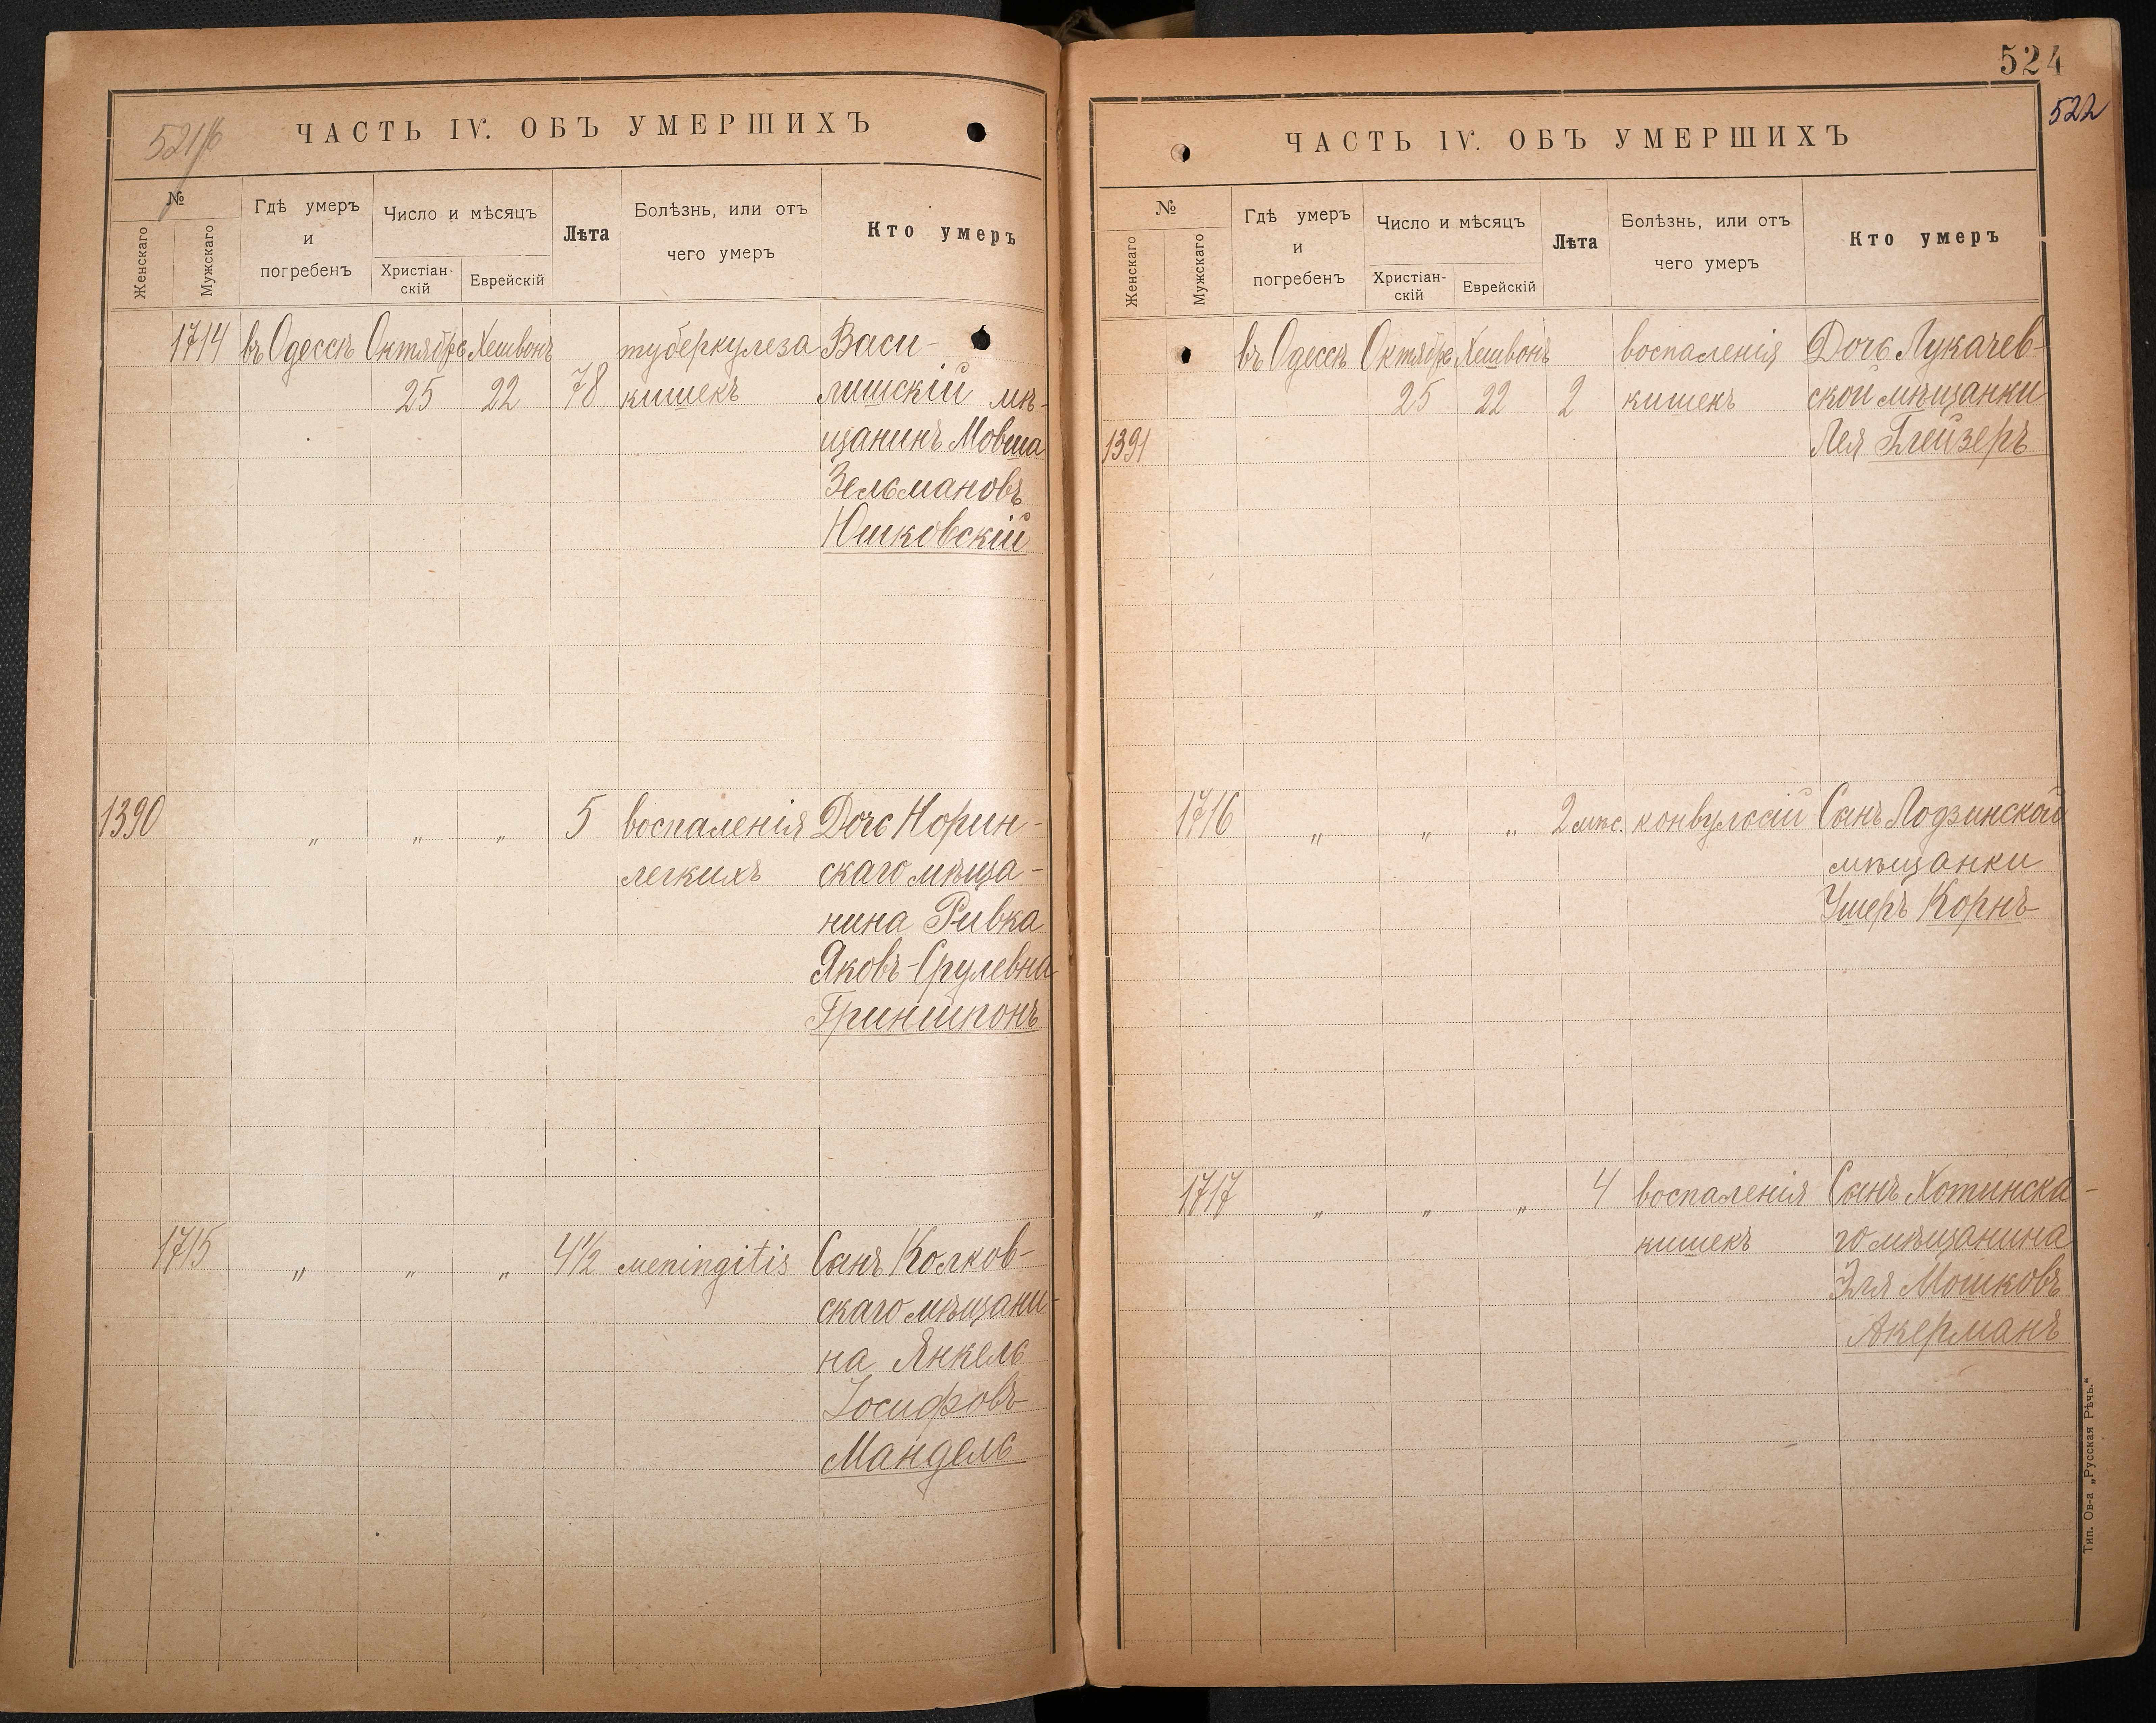 521/6
ЧАСТЬ IV. ОБЪ УМЕРШИХЪ
№
Женскаго
Мужскаго
Гдѣ умеръ
и
погребенъ
Число и мѣсяцъ
Христіан-
скій
Еврейскій
Лѣта
Болѣзнь, или отъ
чего умеръ
Кто умеръ
1714 въ Одессѣ Октября Хешвонъ туберкулеза Васи-
25 22 78 кишекъ лишскій мѣ-
щанинъ Мовша
Зельмановъ
Юшковскій
1390 „ „ „ 5 воспаленія Дочь Норин-
легкихъ скаго мѣща-
нина Ривка
Яковъ-Срулевна
Гриншпонъ
1715 „ „ „ 4½ meningitis Сынъ Колков-
скаго мѣщани-
на Янкель
Іосифовъ
Мандель
524
522
ЧАСТЬ IV. ОБЪ УМЕРШИХЪ
№
Женскаго
Мужскаго
Гдѣ умеръ
и
погребенъ
Число и мѣсяцъ
Христіан-
скій
Еврейскій
Лѣта
Болѣзнь, или отъ
чего умеръ
Кто умеръ
въ Одессѣ Октября Хешвонъ воспаленія Дочь Лукачев-
25 22 2 кишекъ ской мѣщанки
1391 Лея Глейзеръ
1716 „ „ „ 2 мѣс. конвульсій Сынъ Лодзинской
мѣщанки
Ушеръ Корнъ
1717 „ „ „ 4 воспаленія Сынъ Хотинска-
кишекъ го мѣщанина
Эля Мошковъ
Акерманъ
Тип. Ов-а „Русская Рѣчь.“